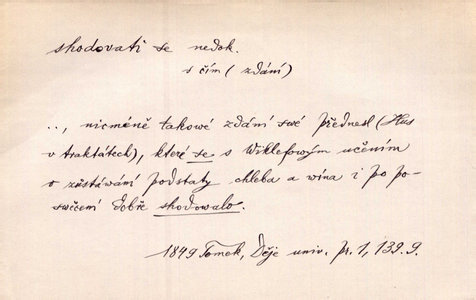 shodovati se nedok.
s čím ( zdání )
.., nicméně takowé zdání swé přednesl ( Hus
v traktátech ), které se s Wiklefowým učením
o zůstáwání podstaty chleba a wína i po po-
swěcení dobře shodowalo.
1849 Tomek, Děje univ. pr. 1, 139. 9.